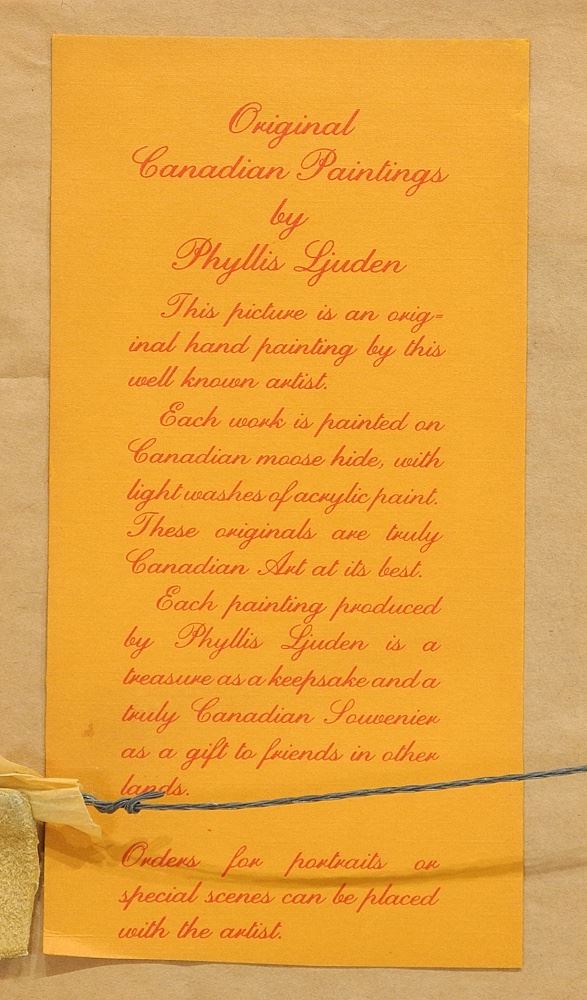 Original
Canadian Paintings
by
Phyllis Ljuden
This picture is an orig=
inal hand painting by this
well known artist.
Each work is painted on
Canadian moose hide, with
light washes of acrylic paint.
These originals are truly
Canadian Art at its best.
Each painting produced
by Phyllis Ljuden is a
treasure as a keepsake and a
truly Canadian Souvenier
as a gift to friends in other
lands.
Orders for portraits or
special scenes can be placed
with the artist.